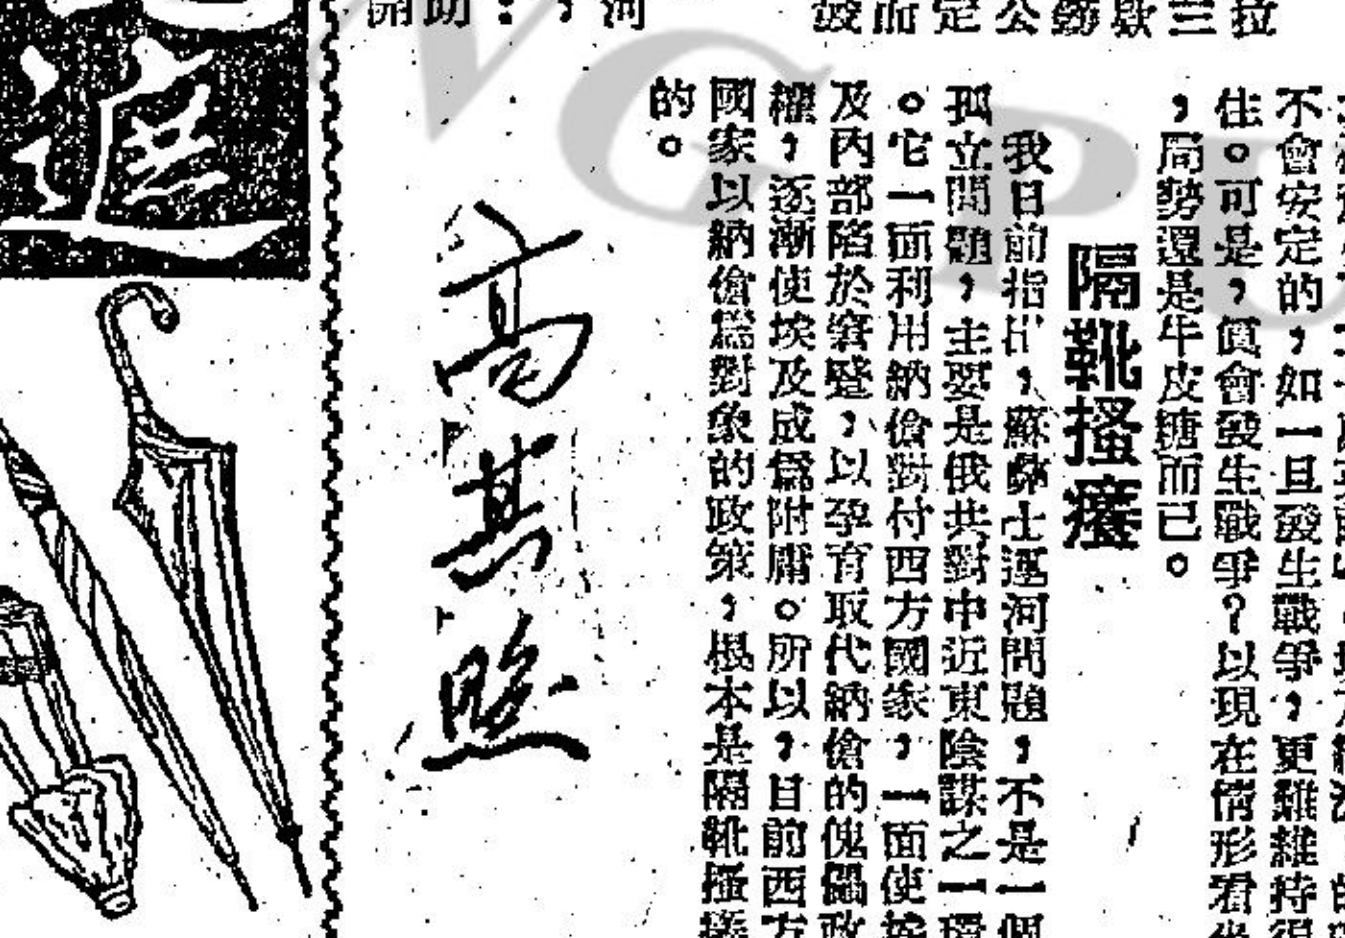 不會安定的，如一旦發生戰爭，更難維持得
住。可是，眞會發生戰爭？以現在情形看
，局勢還是牛皮糖而已。
隔靴搔癢
我日前指出，蘇彝士運河問題，不是一個
孤立問題，主要是俄共對中近東陰謀之一環
。它一面利用納傖對付西方國家，一面使埃
及內部陷於窘蹙，以孕育取代納傖的傀儡政
權，逐漸使埃及成爲附庸。所以，目前西方
國家以納傖爲對象的政策，根本是隔靴搔癢
的。
高其照
遮
NG PU